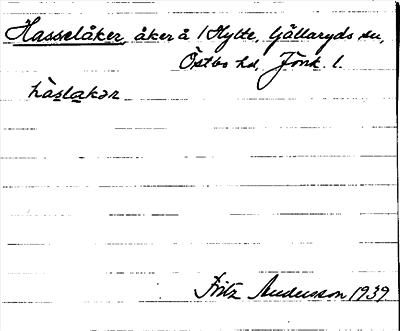 Hasselåker, åker å 1 Hylte, Gällaryds sn,
Östbo hd, Jönk. l.
hàslakər
Fritz Andersson 1939